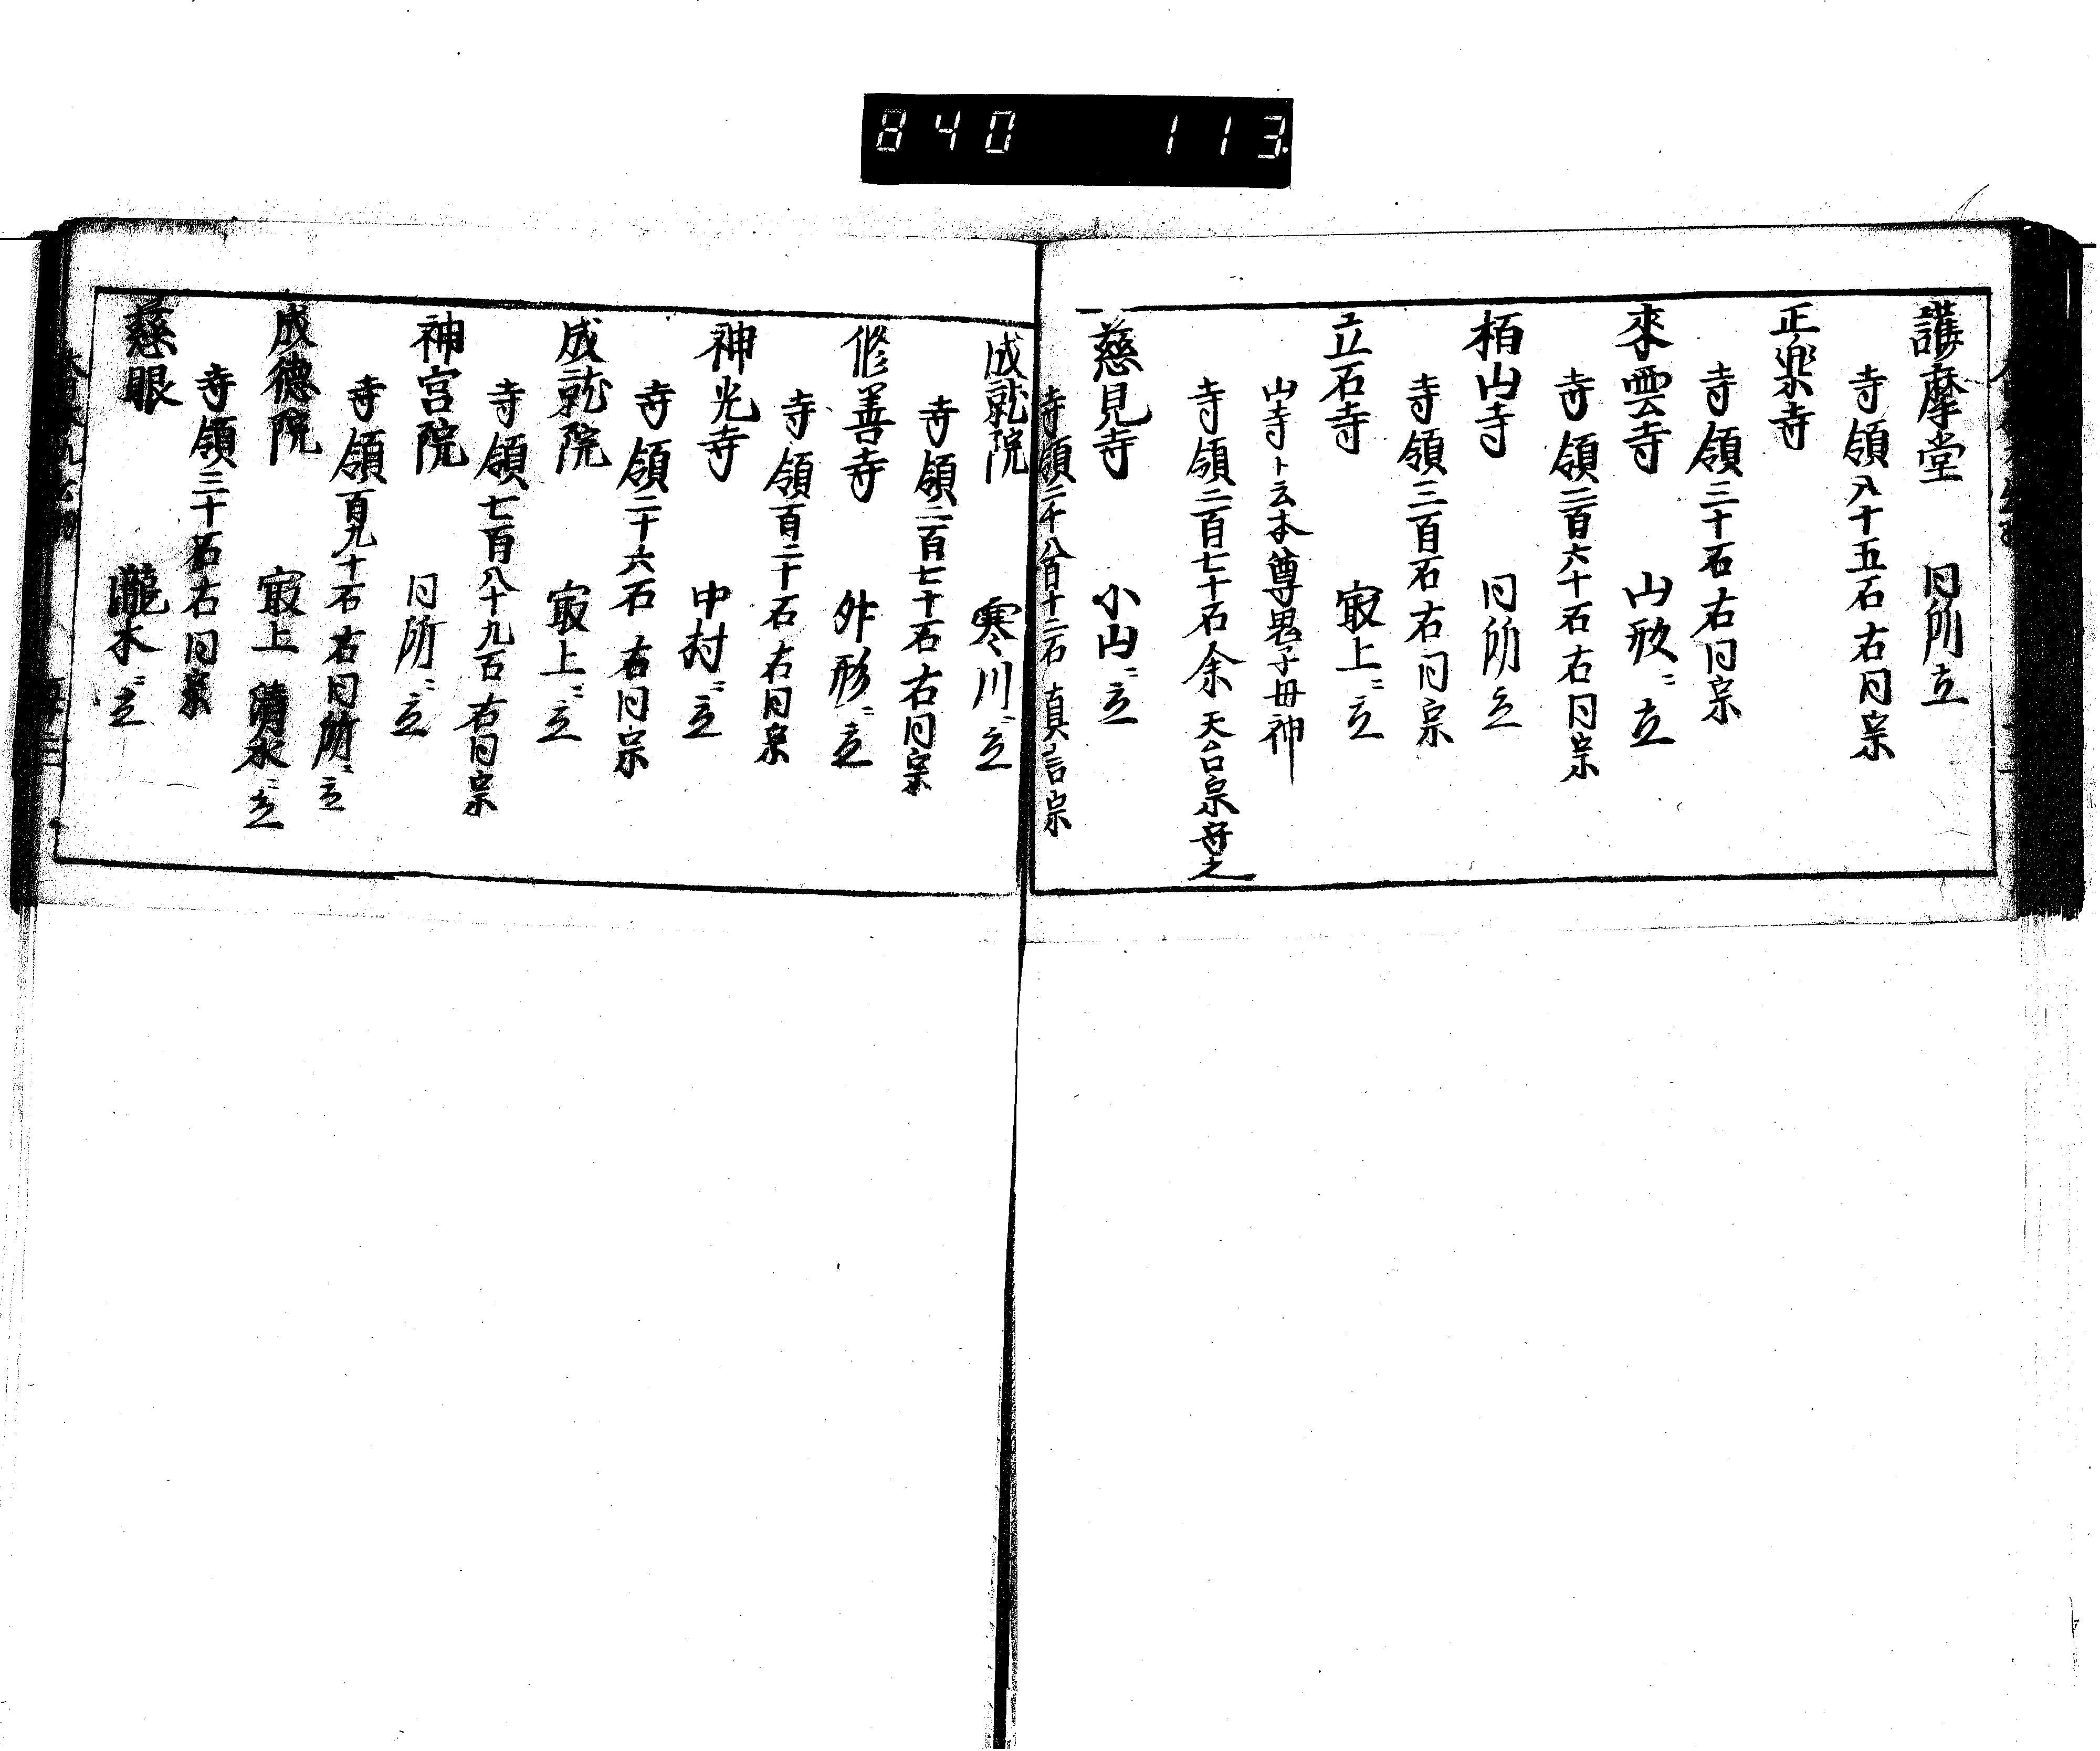 840 113
護摩堂 同所立
寺領八十五石右同宗
正楽寺
寺領三十石右同宗
來雲寺 山形ニ立
寺領二百六十石右同宗
栢山寺 同所立
寺領三百石右同宗
立石寺 寂上ニ立
山寺ト云本尊鬼子母神
寺領二百七十石余天台宗守之
慈見寺 小山ニ立
寺領二千八百十二石真言宗
成就院 寒川ニ立
寺領二百七十石右同宗
修善寺 外形ニ立
寺領百二十石右同宗
神光寺 中村ニ立
寺領二十六石右同宗
成就院 寂上ニ立
寺領七百八十九石右同宗
神宮院 同所ニ立
寺領百九十石右同所ニ立
成徳院 寂上清水ニ立
寺領三十石右同宗
慈眼 瀧水ニ立